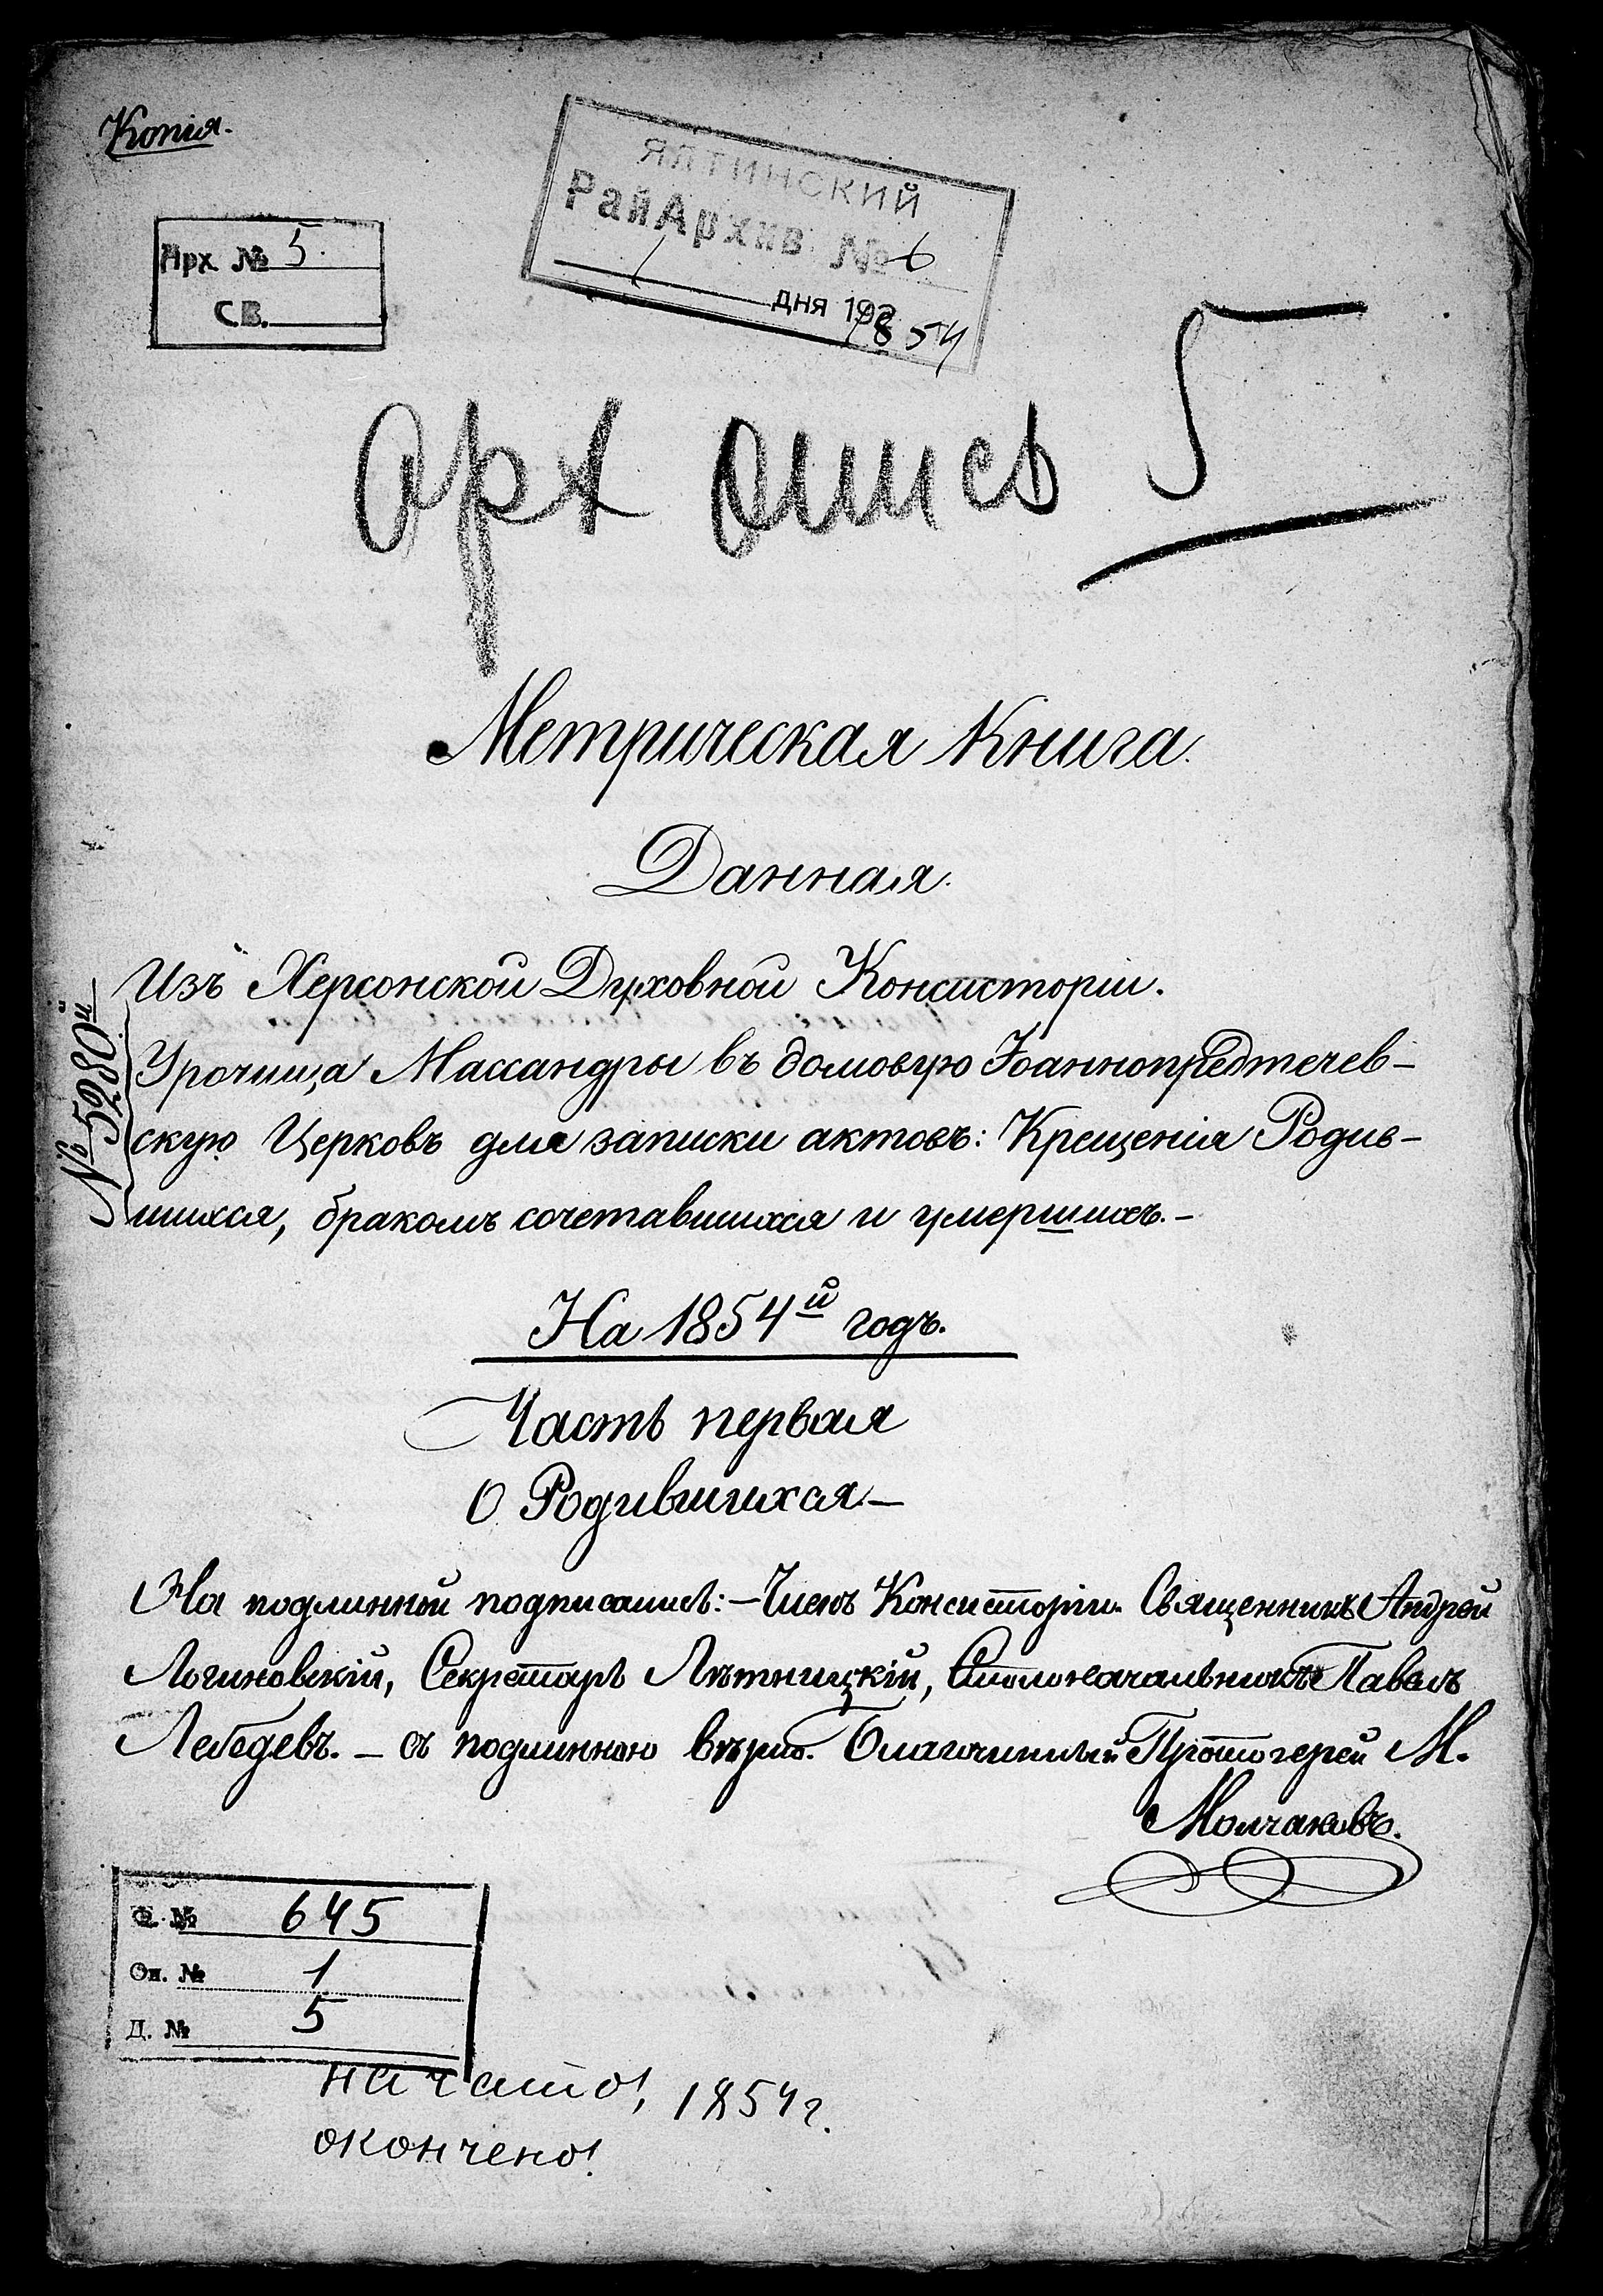 Копія.
ЯЛТИНСКИЙ
РайАрхив №6
дня 192
1854
Арх № 5.
С.В.
арх опись 5
Метрическая Книга.
Данная.
Изъ Херсонской Духовной Консисторіи.
№ 5280й
Урочища Массандры въ домовую Іоаннопредтечев-
скую Церковъ для записки актовъ: Крещенія Родив-
шихся, бракомъ сочетавшихся и умершихъ.-
На 1854й годъ.
Часть первая
О Родившихся.-
На подлинной подписались:-Членъ Консисторіи. Священникъ Андрей
Логиновскій, Секретарь Лѣтницкій, Столоначальникъ Павелъ
Лебедевъ.- съ подлинною вѣрно. Благочинный Протоіерей М.
Молчановъ.
Ф. № 645
Оп. № 1
Д. № 5
начато! 1854 г.
окончено!